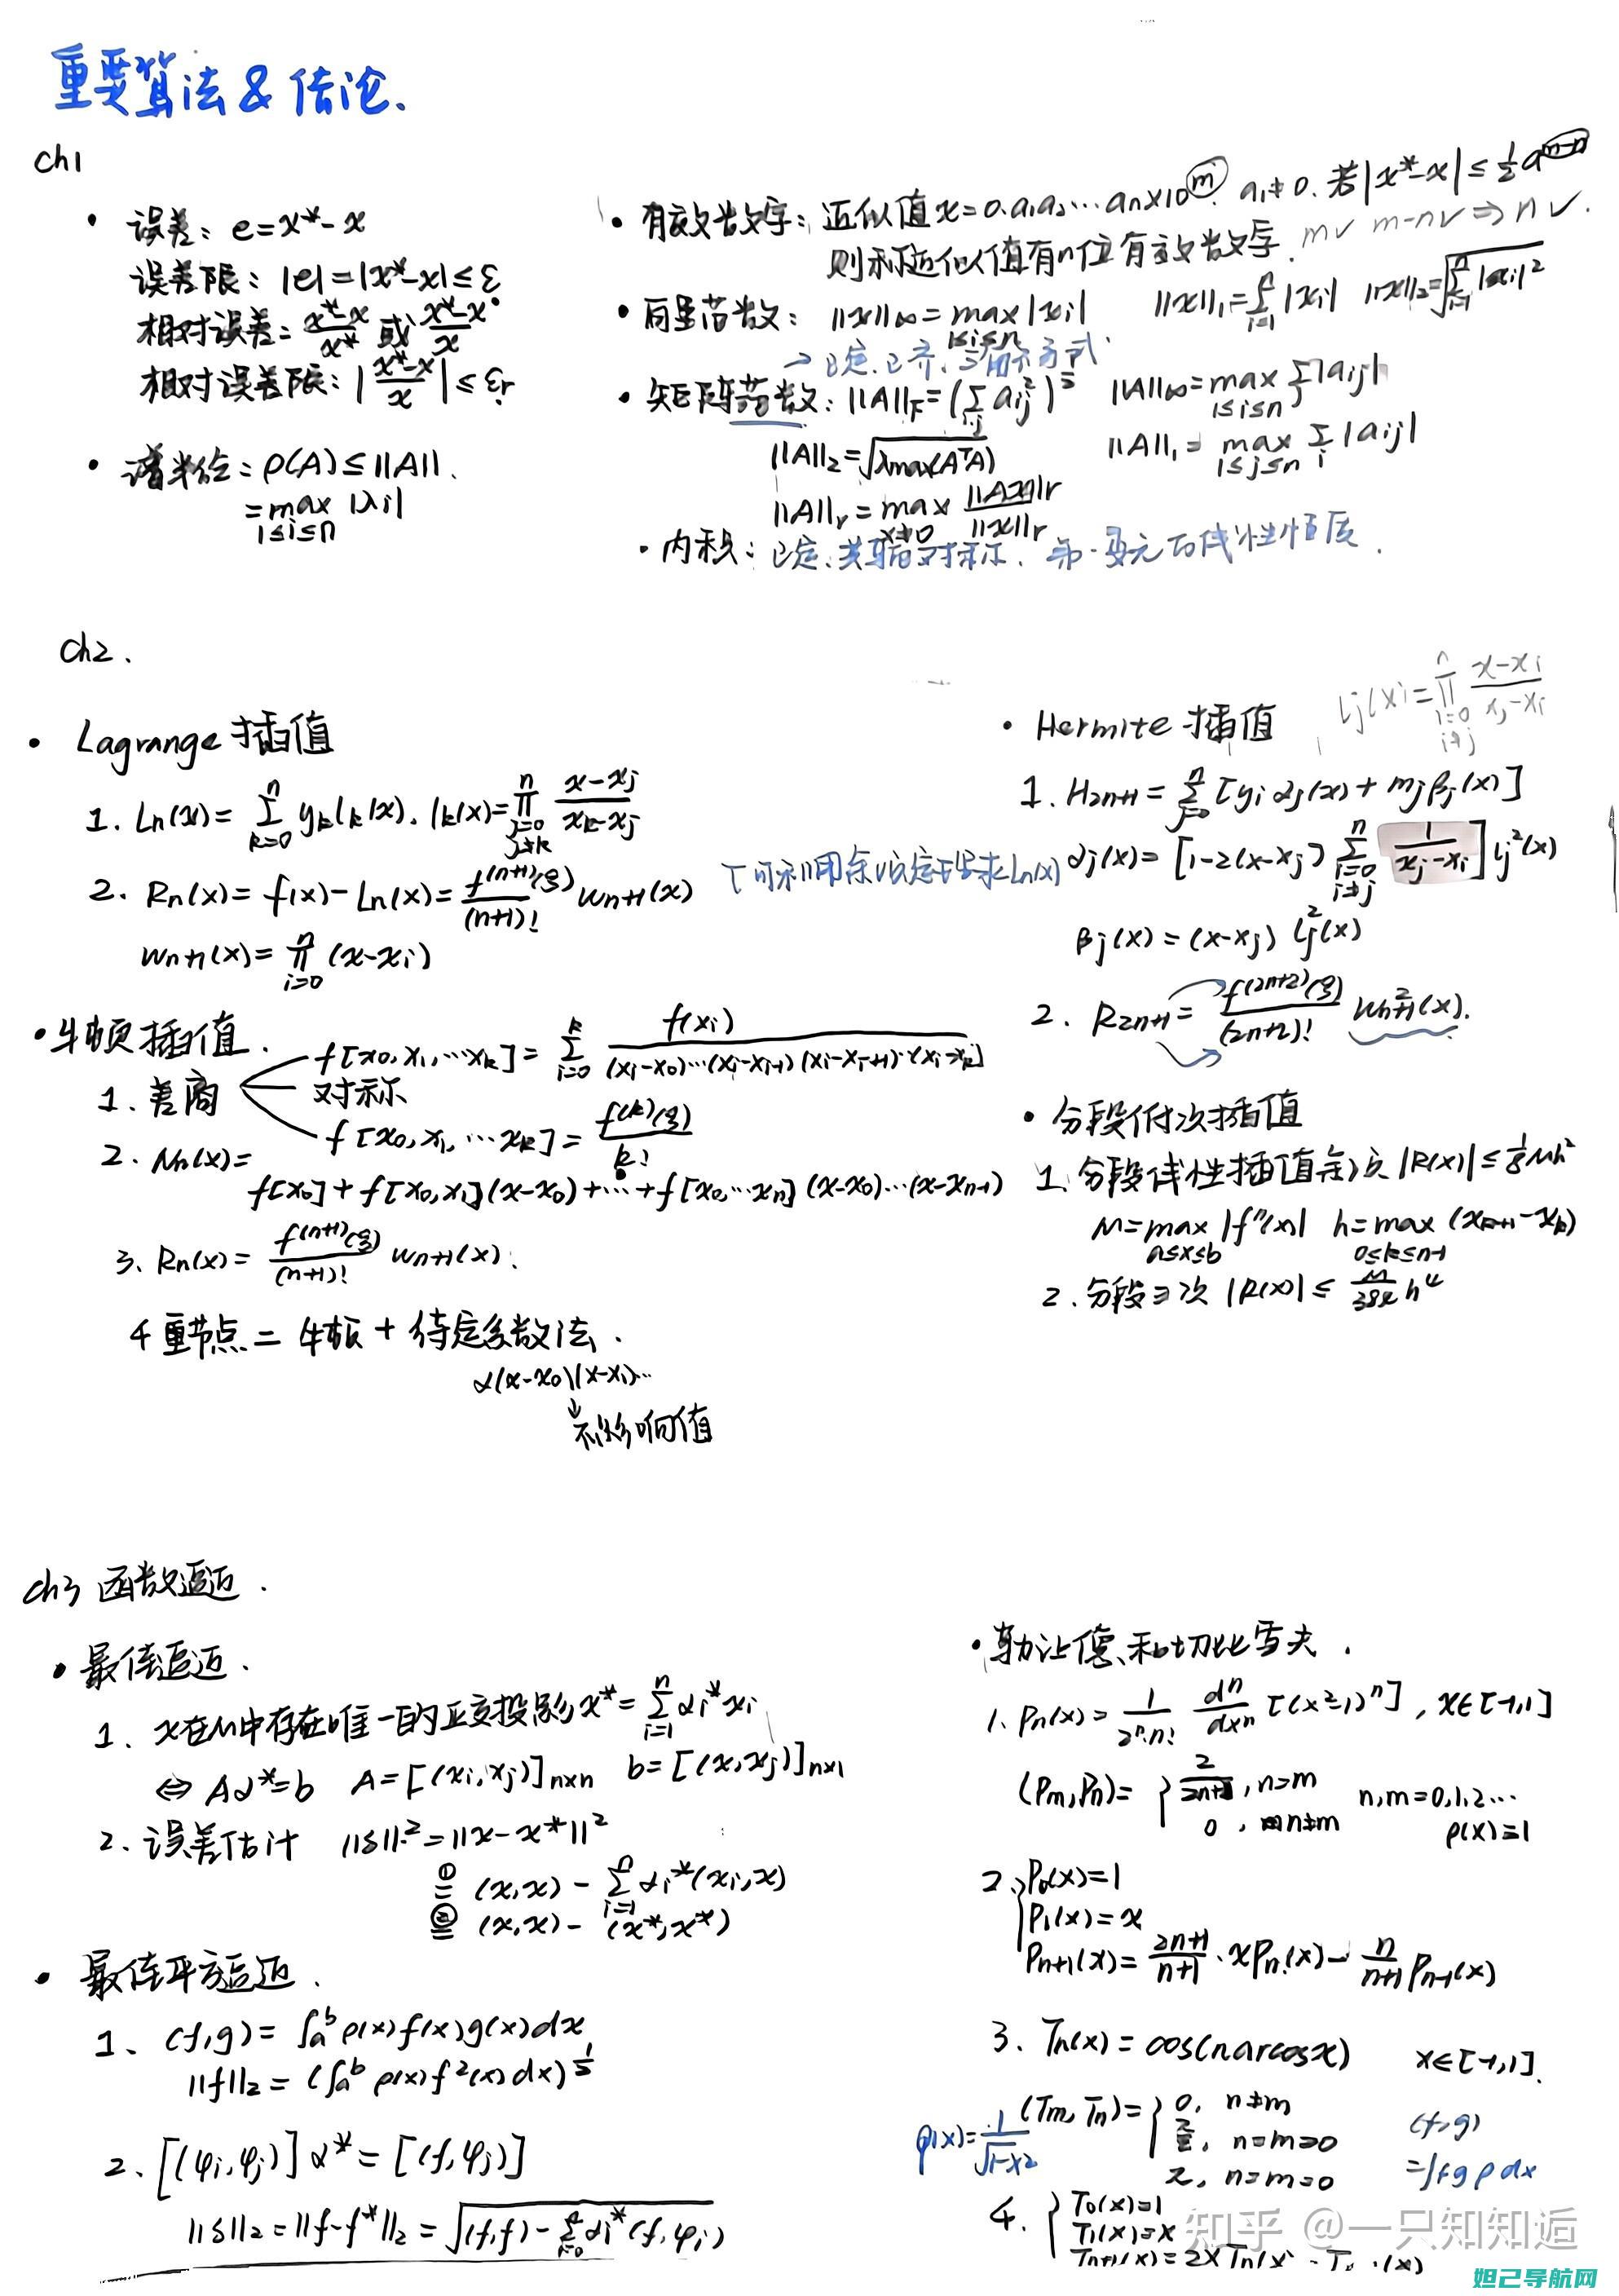 重要算法 & 结论.
ch1
· 误差: e=x*-x
误差限: |e|=|x*-x|≤ε
相对误差= (x*-x)/x* 或 (x*-x)/x
相对误差限: |(x*-x)/x| ≤ εr
· 谱半径: ρ(A)≤||A||.
=max |λi|
1≤i≤n
· 有效数字: 近似值 x=0.a1a2…an×10^m. a1≠0. 若|x*-x|≤½a^(m-n)
则称近似值有n位有效数字. m✓ m-n✓ ⇒ n✓.
· 向量范数: ||x||∞=max|xi| ||x||1=Σ|xi| ||x||2=√(Σ|xi|²)
1≤i≤n
→正定.正齐.三角不等式.
· 矩阵范数: ||A||F=(Σ aij²)^½ ||A||∞=max Σ|aij|
i,j 1≤i≤n j
||A||2=√(λmax(AᵀA)) ||A||1=max Σ|aij|
1≤j≤n i
||A||r=max ||Ax||r/||x||r
x≠0
· 内积: 正定.共轭对称. 第一变元的线性性质.
ch2.
· Lagrange 插值
1. Ln(x)= Σ(k=0,n) yk lk(x). lk(x)=Π(j=0,j≠k,n) (x-xj)/(xk-xj)
2. Rn(x)=f(x)-Ln(x)= f^(n+1)(ξ)/(n+1)! wn+1(x)
wn+1(x)= Π(i=0,n) (x-xi)
· 牛顿插值.
1. 差商
f[x0,x1,…xk]= Σ(i=0,k) f(xi)/((xi-x0)…(xi-xi-1)(xi-xi+1)…(xi-xk))
对称
f[x0,x1,…xk]= f^(k)(ξ)/k!
2. Nn(x)=
f[x0]+f[x0,x1](x-x0)+…+f[x0,…xn](x-x0)…(x-xn-1)
3. Rn(x)= f^(n+1)(ξ)/(n+1)! wn+1(x).
4 重节点 = 牛顿 + 待定系数法.
α(x-x0)(x-x1)…
↓
不影响值
· Hermite 插值 lj(x)=Π(i=0,i≠j,n) (x-xi)/(xj-xi)
1. H2n+1= Σ(j=0,n) [yi αj(x)+mjβj(x)]
αj(x)= [1-2(x-xj) Σ(i=0,i≠j,n) 1/(xj-xi)] lj²(x)
βj(x)=(x-xj) lj²(x)
2. R2n+1= f^(2n+2)(ξ)/(2n+2)! wn+1²(x).
· 分段低次插值
1. 分段线性插值余项 |R(x)|≤⅛Mh²
M=max |f''(x)| h=max (xk+1-xk)
a≤x≤b 0≤k≤n-1
2. 分段三次 |R(x)|≤ M/384 h⁴
ch3 函数逼近.
· 最佳逼近.
1. x在M中存在唯一的正交投影x*= Σ(i=1,n) αi*xi
⇔ Aα*=b A=[(xi,xj)]n×n b=[(x,xj)]n×1
2. 误差估计 ||δ||²=||x-x*||²
①= (x,x)- Σ(i=1,n) αi*(xi,x)
②= (x,x)-(x*,x*)
· 最佳平方逼近.
1. (f,g)= ∫a^b ρ(x)f(x)g(x)dx
||f||2=(∫a^b ρ(x)f²(x)dx)^½
2. [(φi,φj)] α*=[(f,φj)]
||δ||2=||f-f*||2= √((f,f)- Σ(i=0,n) αi*(f,φi))
· 勒让德和切比雪夫.
1. Pn(x)= 1/(2ⁿ·n!) dⁿ/dxⁿ [(x²-1)ⁿ], x∈[-1,1]
(Pm,Pn)= { 2/(2n+1), n=m n,m=0,1,2…
0, n≠m ρ(x)=1
2. { P0(x)=1
P1(x)=x
Pn+1(x)= (2n+1)/(n+1)·xPn(x)- n/(n+1) Pn-1(x)
3. Tn(x)=cos(narcosx) x∈[-1,1].
ρ(x)= 1/√(1-x²) (Tm,Tn)= { 0, n≠m (f,g)
π/2, n=m≠0 =∫fgρdx
π, n=m=0
4. { T0(x)=1
T1(x)=x
Tn+1(x)=2xTn(x)-T
知乎 @一只知知逅
妲己导航网